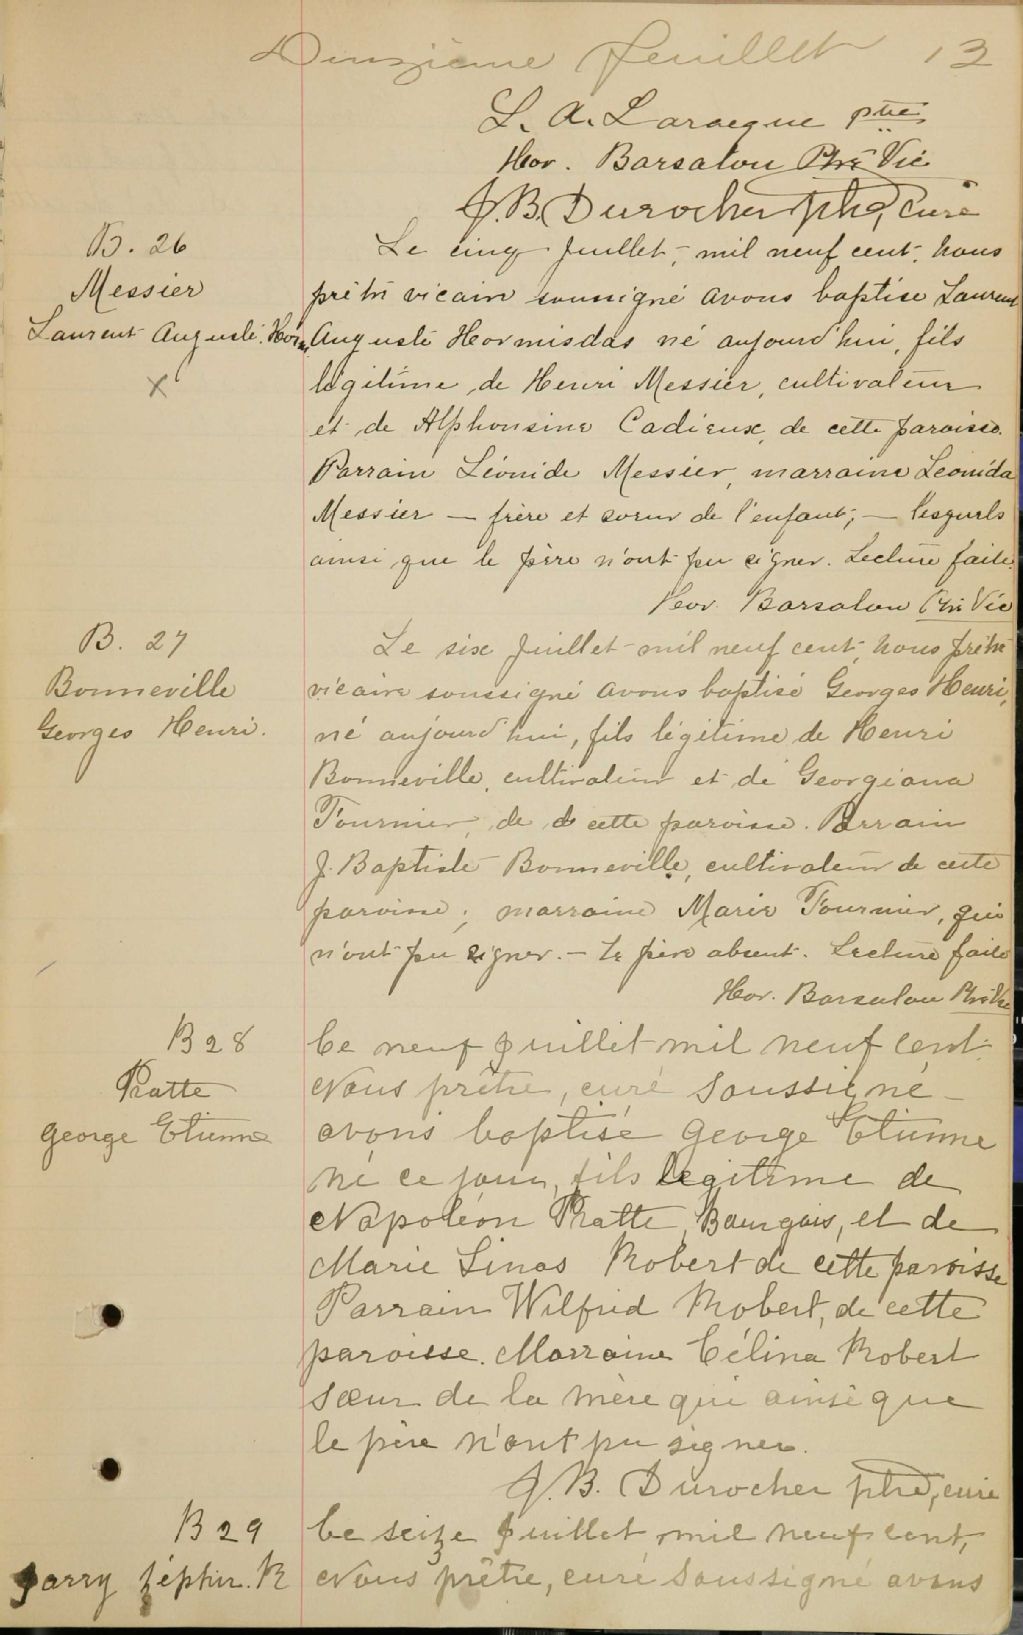 Douzième feuillet 13
L. A. Larocque ptre
Hor. Barsalou Ptre Vic
J. B. Durocher ptre, curé
B. 26
Messier
Laurent Auguste Horm.
X
Le cinq Juillet, mil neuf cent, nous
prêtre vicaire soussigné avons baptisé Laurent
Auguste Hormisdas né aujourd'hui, fils
légitime de Henri Messier, cultivateur
et de Alphonsine Cadieux, de cette paroisse.
Parrain Léonide Messier, marraine Leonida
Messier — frère et sœur de l'enfant; — lesquels
ainsi que le père n'ont pu signer. Lecture faite.
Hor. Barsalou Ptre Vic
B. 27
Bonneville
Georges Henri.
Le six Juillet mil neuf cent, nous prêtre
vicaire soussigné avons baptisé Georges Henri,
né aujourd'hui, fils légitime de Henri
Bonneville, cultivateur et de Georgiana
Fournier, de de cette paroisse. Parrain
J. Baptiste Bonneville, cultivateur de cette
paroisse; marraine Marie Fournier, qui
n'ont pu signer. — Le père absent. Lecture faite
Hor. Barsalou Ptre Vic
B 28
Pratte
George Etienne
Ce neuf Juillet mil neuf cent
Nous prêtre, curé soussigné
avons baptisé George Etienne
né ce jour, fils legitime de
Napoléon Pratte, Bourgois, et de
Marie Linas Robert de cette paroisse
Parrain Wilfrid Robert, de cette
paroisse. Marraine Célina Robert
sœur de la mère qui ainsi que
le père n'ont pu signer.
J. B. Durocher ptre, curé
B 29
Jarry Zéphir. R
Ce seize Juillet mil neuf cent,
Nous prêtre, curé soussigné avons